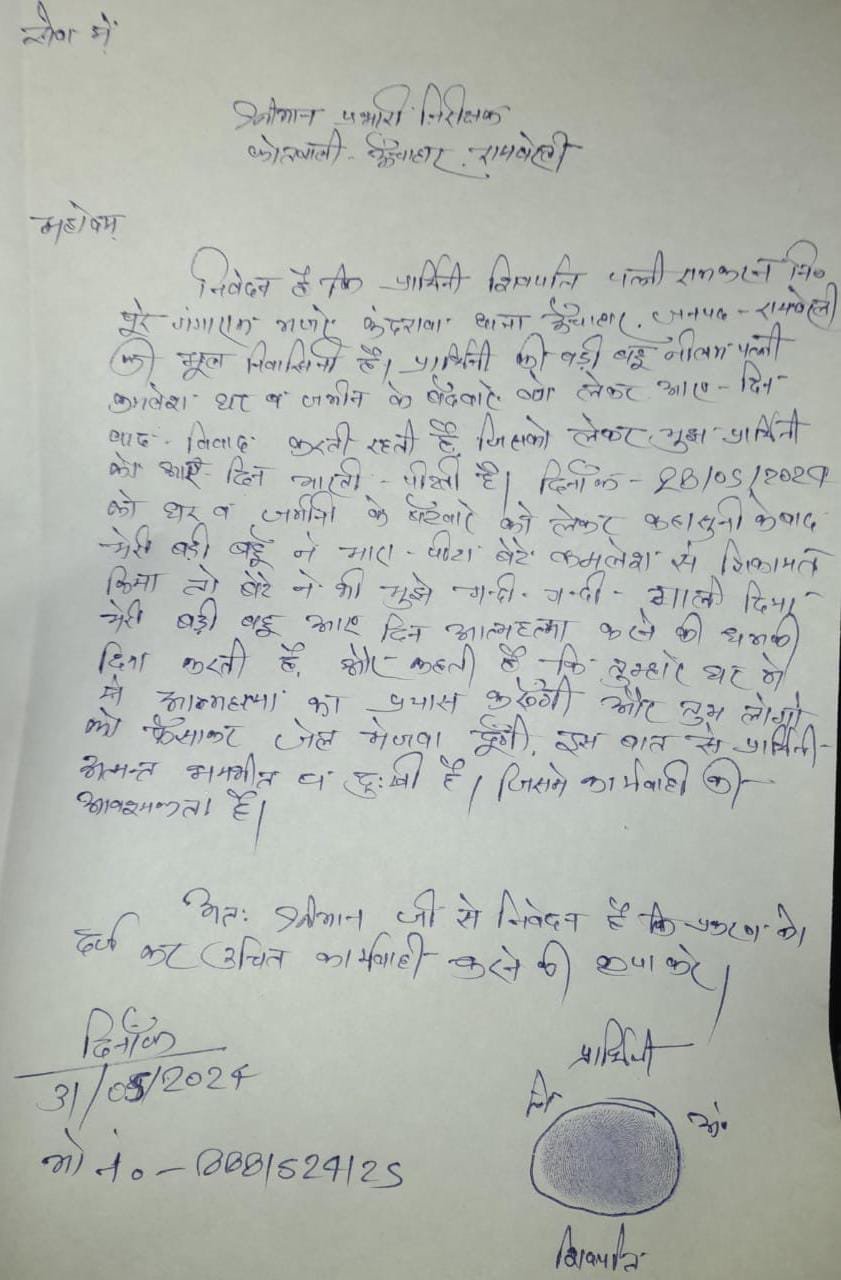 सेवा में
श्रीमान प्रभारी निरीक्षक
कोतवाली - ऊँचाहार, रायबरेली
महोदय
निवेदन है कि प्रार्थिनी शिवपति पत्नी रामकरन नि०
पूरे गंगाराम मजरे कंदरावा थाना ऊँचाहार, जनपद - रायबरेली
की मूल निवासिनी है। प्रार्थिनी की बड़ी बहू नीलम पत्नी
कमलेश घर व जमीन के बँटवारे को लेकर आए - दिन
वाद - विवाद करती रहती है, जिसको लेकर मुझ प्रार्थिनी
को आए दिन मारती - पीटती है। दिनाँक - 28/05/2024
को घर व जमीन के बँटवारे को लेकर कहासुनी के बाद
मेरी बड़ी बहू ने मारा - पीटा बेटे कमलेश से शिकायत
किया तो बेटे ने भी मुझे गन्दी - गन्दी - गाली दिया
मेरी बड़ी बहू आए दिन आत्महत्या करने की धमकी
दिया करती है, और कहती है कि तुम्हारे घर में
से आत्महत्या का प्रयास करूँगी और तुम लोगो
को फँसाकर जेल भेजवा दूँगी, इस बात से प्रार्थिनी
अत्यन्त भयभीत व दुःखी है। जिसमे कार्यवाही की
आवश्यकता है।
अतः श्रीमान जी से निवेदन है कि प्रकरण को
दर्ज कर उचित कार्यवाही करने की कृपा करे।
दिनाँक
31/05/2024
प्रार्थिनी
नि० अं०
मो नं० -
शिवपति